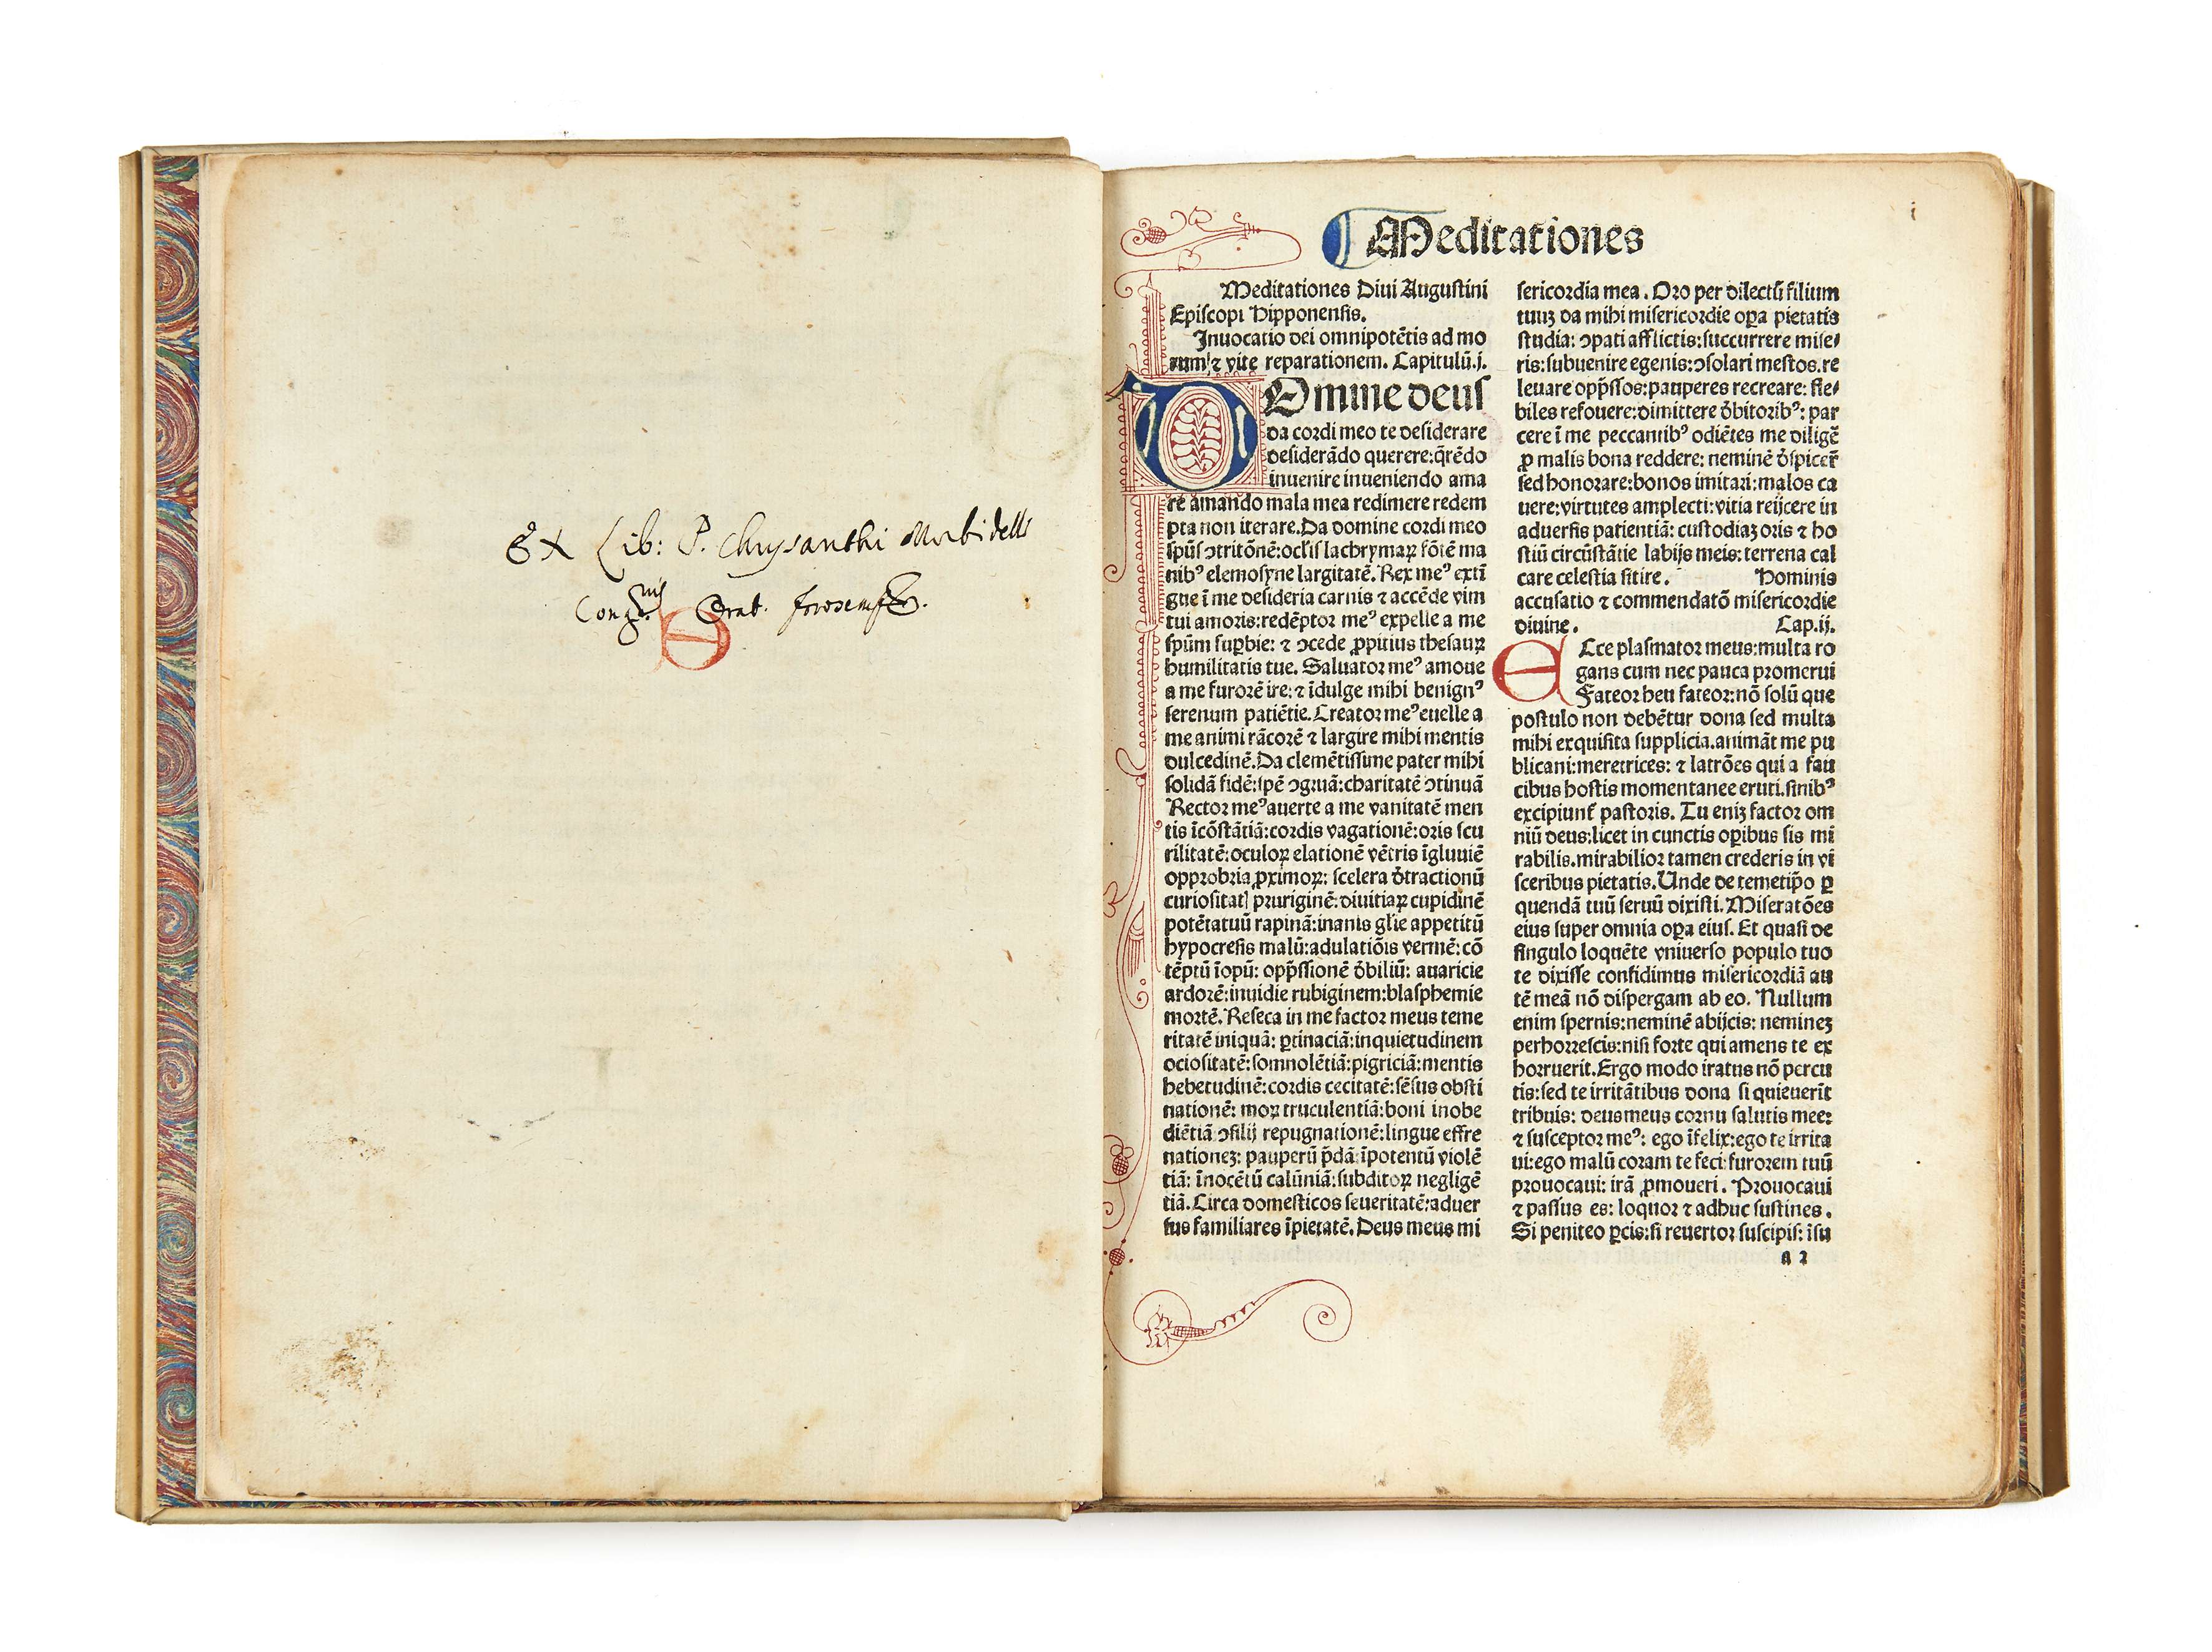 Ex Lib: P. Chrysanthi Morbidelli
Cong.nis Orat.
i
Meditationes
Meditationes Diui Auguſtini
Epiſcopi Hipponenſis.
Inuocatio dei omnipotẽtis ad mo
rum ⁊ vite reparationem. Capitulũ.j.
DOmine deuſ
da cordi meo te deſiderare
deſiderãdo querere:q̃rẽdo
inuenire inueniendo ama
re amando mala mea redimere redem
pta non iterare.Da domine cordi meo
ſpũſ ↄtritõnẽ:oclĩſ lachrymaꝝ fõtẽ ma
nibꝰ elemoſyne largitatẽ. Rex meꝰ extĩ
gue ĩ me deſideria carnis ⁊ accẽde vim
tui amoris:redẽptor meꝰ expelle a me
ſpũm ſuꝑbie: ⁊ ↄcede ꝓpitius theſauꝝ
humilitatis tue. Saluator meꝰ amoue
a me furorẽ ire: ⁊ ĩdulge mihi benignꝰ
ſerenum patiẽtie. Creator meꝰ euelle a
me animi rãcorẽ ⁊ largire mihi mentis
dulcedinẽ.Da clemẽtiſſime pater mihi
ſolidã fidẽ:ſpẽ ↄgruã:charitatẽ ↄtinuã
Rector meꝰ auerte a me vanitatẽ men
tis ĩcõſtãtiã:cordis vagationẽ:oris ſcu
rilitatẽ:oculoꝝ elationẽ vẽtris ĩgluuiẽ
opprobria ꝓximoꝝ: ſcelera d̃tractionũ
curioſitatꝭ pruriginẽ:diuitiaꝝ cupidinẽ
potẽtatuũ rapinã:inanis gl̃ie appetitũ
hypocreſis malũ:adulatiõis vermẽ:cõ
tẽptũ ĩopũ: opp̃ſſionẽ d̃biliũ: auaricie
ardorẽ:inuidie rubiginem:blaſphemie
mortẽ. Reſeca in me factor meus teme
ritatẽ iniquã: ꝑtinaciã:inquietudinem
ocioſitatẽ:ſomnolẽtiã:pigriciã:mentis
hebetudinẽ:cordis cecitatẽ:ſẽſus obſti
nationẽ: moꝝ truculentiã:boni inobe
diẽtiã ↄſilij repugnationẽ:lingue effre
nationeꝫ: pauperũ p̃dã:ĩpotentũ violẽ
tiã: ĩnocẽtũ calũniã:ſubditoꝝ negligẽ
tiã. Circa domeſticos ſeueritatẽ:aduer
ſus familiares ĩpietatẽ. Deus meus mi
ſericordia mea. Oro per dilectũ filium
tuuꝫ da mihi miſericordie oꝑa pietatis
ſtudia: ↄpati afflictis:ſuccurrere miſe/
ris:ſubuenire egenis:ↄſolari meſtos.re
leuare opp̃ſſos:pauperes recreare: fle/
biles refouere:dimittere d̃bitoribꝰ: par
cere ĩ me peccantibꝰ odiẽtes me diligẽ
ꝓ malis bona reddere: neminẽ d̃ſpicer̃
ſed honorare:bonos imitari:malos ca
uere:virtutes amplecti:vitia reijcere in
aduerſis patientiã: cuſtodiaꝫ oris ⁊ ho
ſtiũ circũſtãtie labijs meis: terrena cal
care celeſtia ſitire. Hominis
accuſatio ⁊ commendatõ miſericordie
diuine. Cap.ij.
ECce plaſmator meus:multa ro
gans cum nec pauca promerui
Fateor heu fateor:nõ ſolũ que
poſtulo non debẽtur dona ſed multa
mihi exquiſita ſupplicia.animãt me pu
blicani:meretrices: ⁊ latrões qui a fau
cibus hoſtis momentanee eruti.ſinibꝰ
excipiunt̃ paſtoris. Tu eniꝫ factor om
niũ deus:licet in cunctis oꝑibus ſis mi
rabilis.mirabilior tamen crederis in vi
ſceribus pietatis.Unde de temetip̃o ꝑ
quendã tuũ ſeruũ dixiſti. Miſeratões
eius ſuper omnia oꝑa eiuſ. Et quaſi de
ſingulo loquẽte vniuerſo populo tuo
te dixiſſe confidimus miſericordiã au
tẽ meã nõ diſpergam ab eo. Nullum
enim ſpernis:neminẽ abijcis: nemineꝫ
perhorreſcis:niſi forte qui amens te ex
horruerit. Ergo modo iratus nõ percu
tis:ſed te irritãtibus dona ſi quieuerĩt
tribuis: deus meus cornu ſalutis mee:
⁊ ſuſceptor meꝰ: ego ĩfelix:ego te irrita
ui:ego malũ coram te feci:furorem tuũ
prouocaui: irã ꝓmoueri. Prouocaui
⁊ paſſus es: loquor ⁊ adhuc ſuſtines.
Si peniteo ꝑcis:ſi reuertor ſuſcipis: ĩſu
a 2